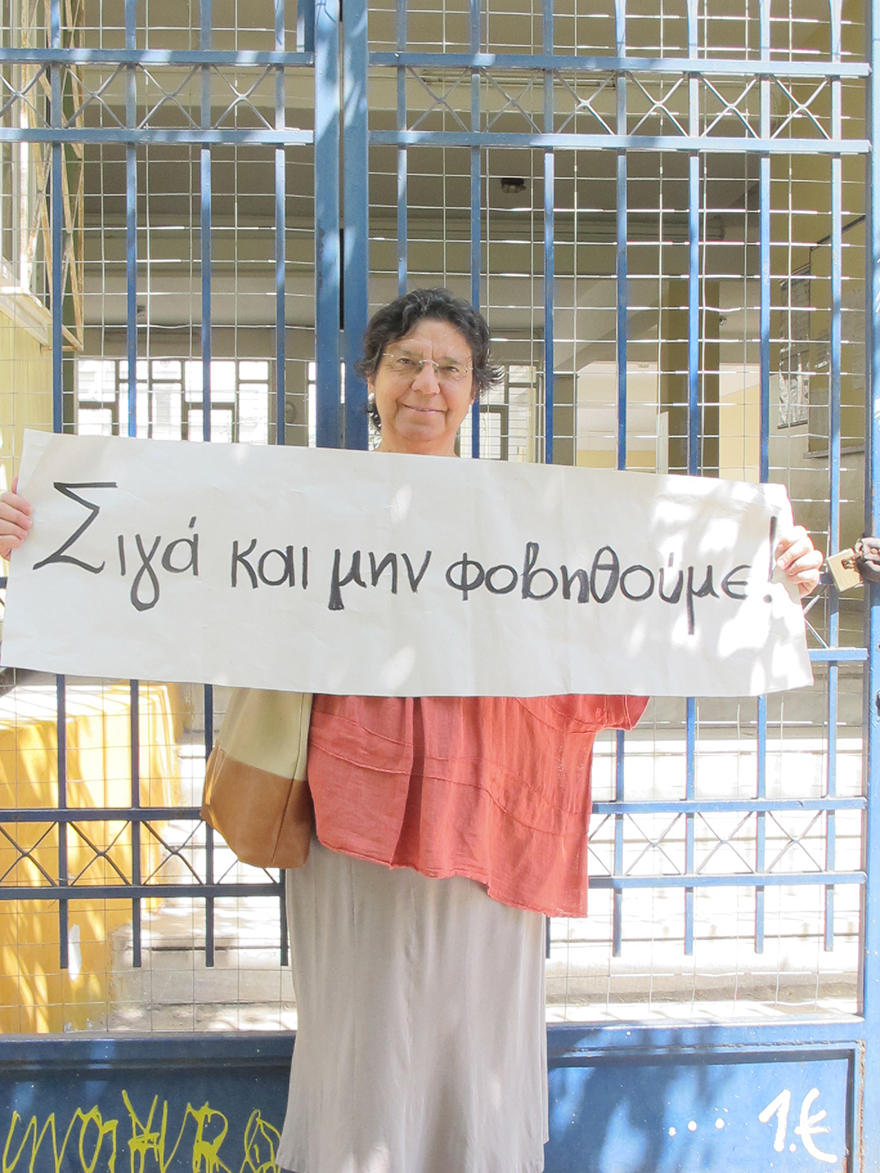 Σιγά και μην φοβηθούμε!
... 1.€